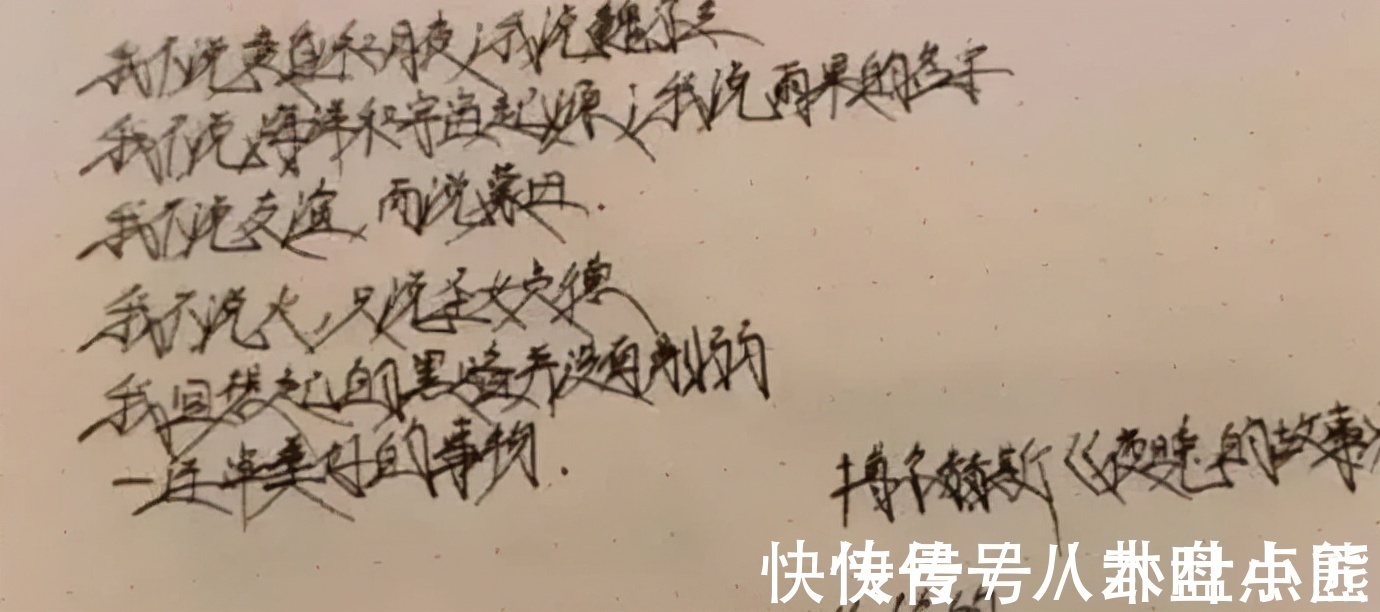 我不说黄昏和月夜；我说魏尔兰
我不说海洋和宇宙起源；我说雨果的名字
我不说友谊，而说蒙田.
我不说火，只说圣女贞德
我回想起的黑暗并没有削弱
一连串美好的事物.
博尔赫斯《夜晚的故事》
快传号